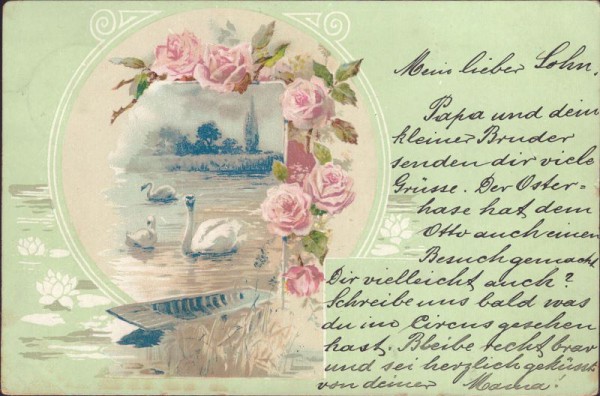 Mein lieber Sohn,
Papa und dein
kleiner Bruder
senden dir viele
Grüsse. Der Oster=
hase hat dem
Otto auch einen
Besuch gemacht
Dir vielleicht auch?
Schreibe uns bald was
du im Circus gesehen
hast. Bleibe recht brav
und sei herzlich geküsst
von deiner Mama!